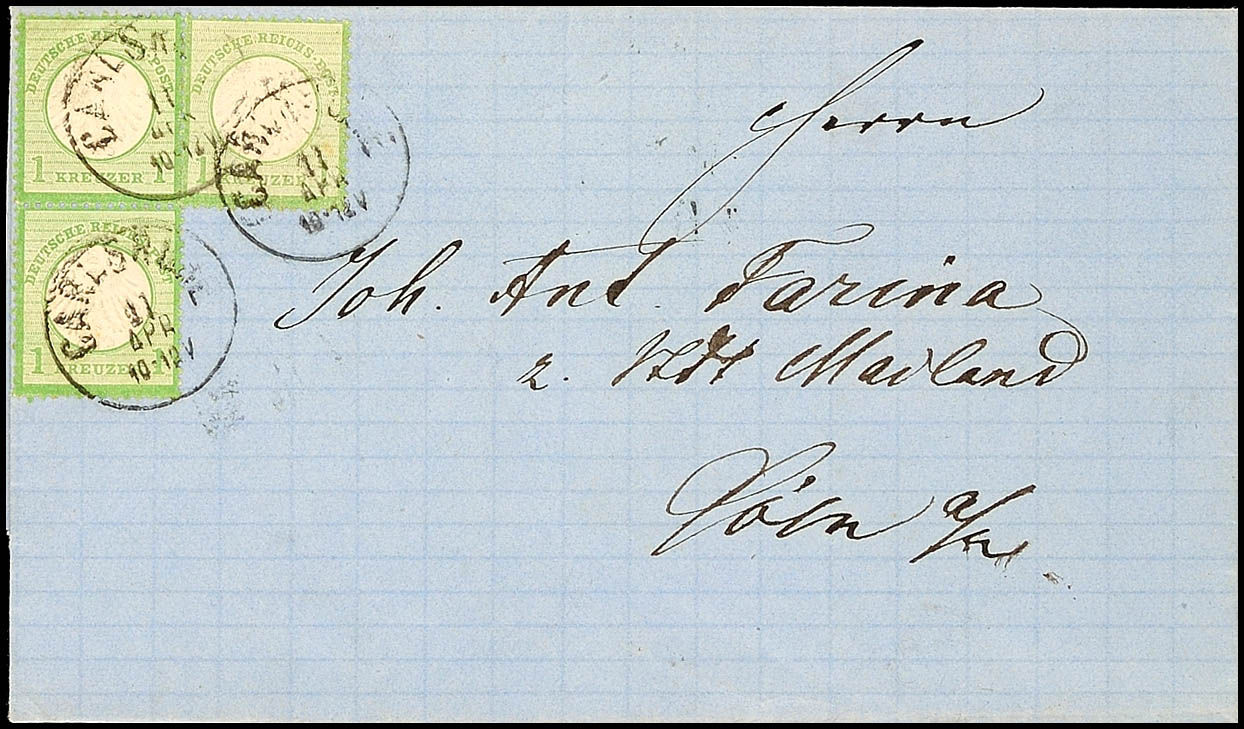 DEUTSCHE REICHS-POST
1 KREUZER 1
CARLSRUHE
11
APR
10-12V
DEUTSCHE REICHS-POST
1 KREUZER
CARLSRUHE
11
APR
10-12V
DEUTSCHE REICHS-POST
1 KREUZER 1
CARLSRUHE
11
APR
10-12V
Herrn
Joh. Ant. Farina
z. Stdt Mailand
Cöln a/Rh.